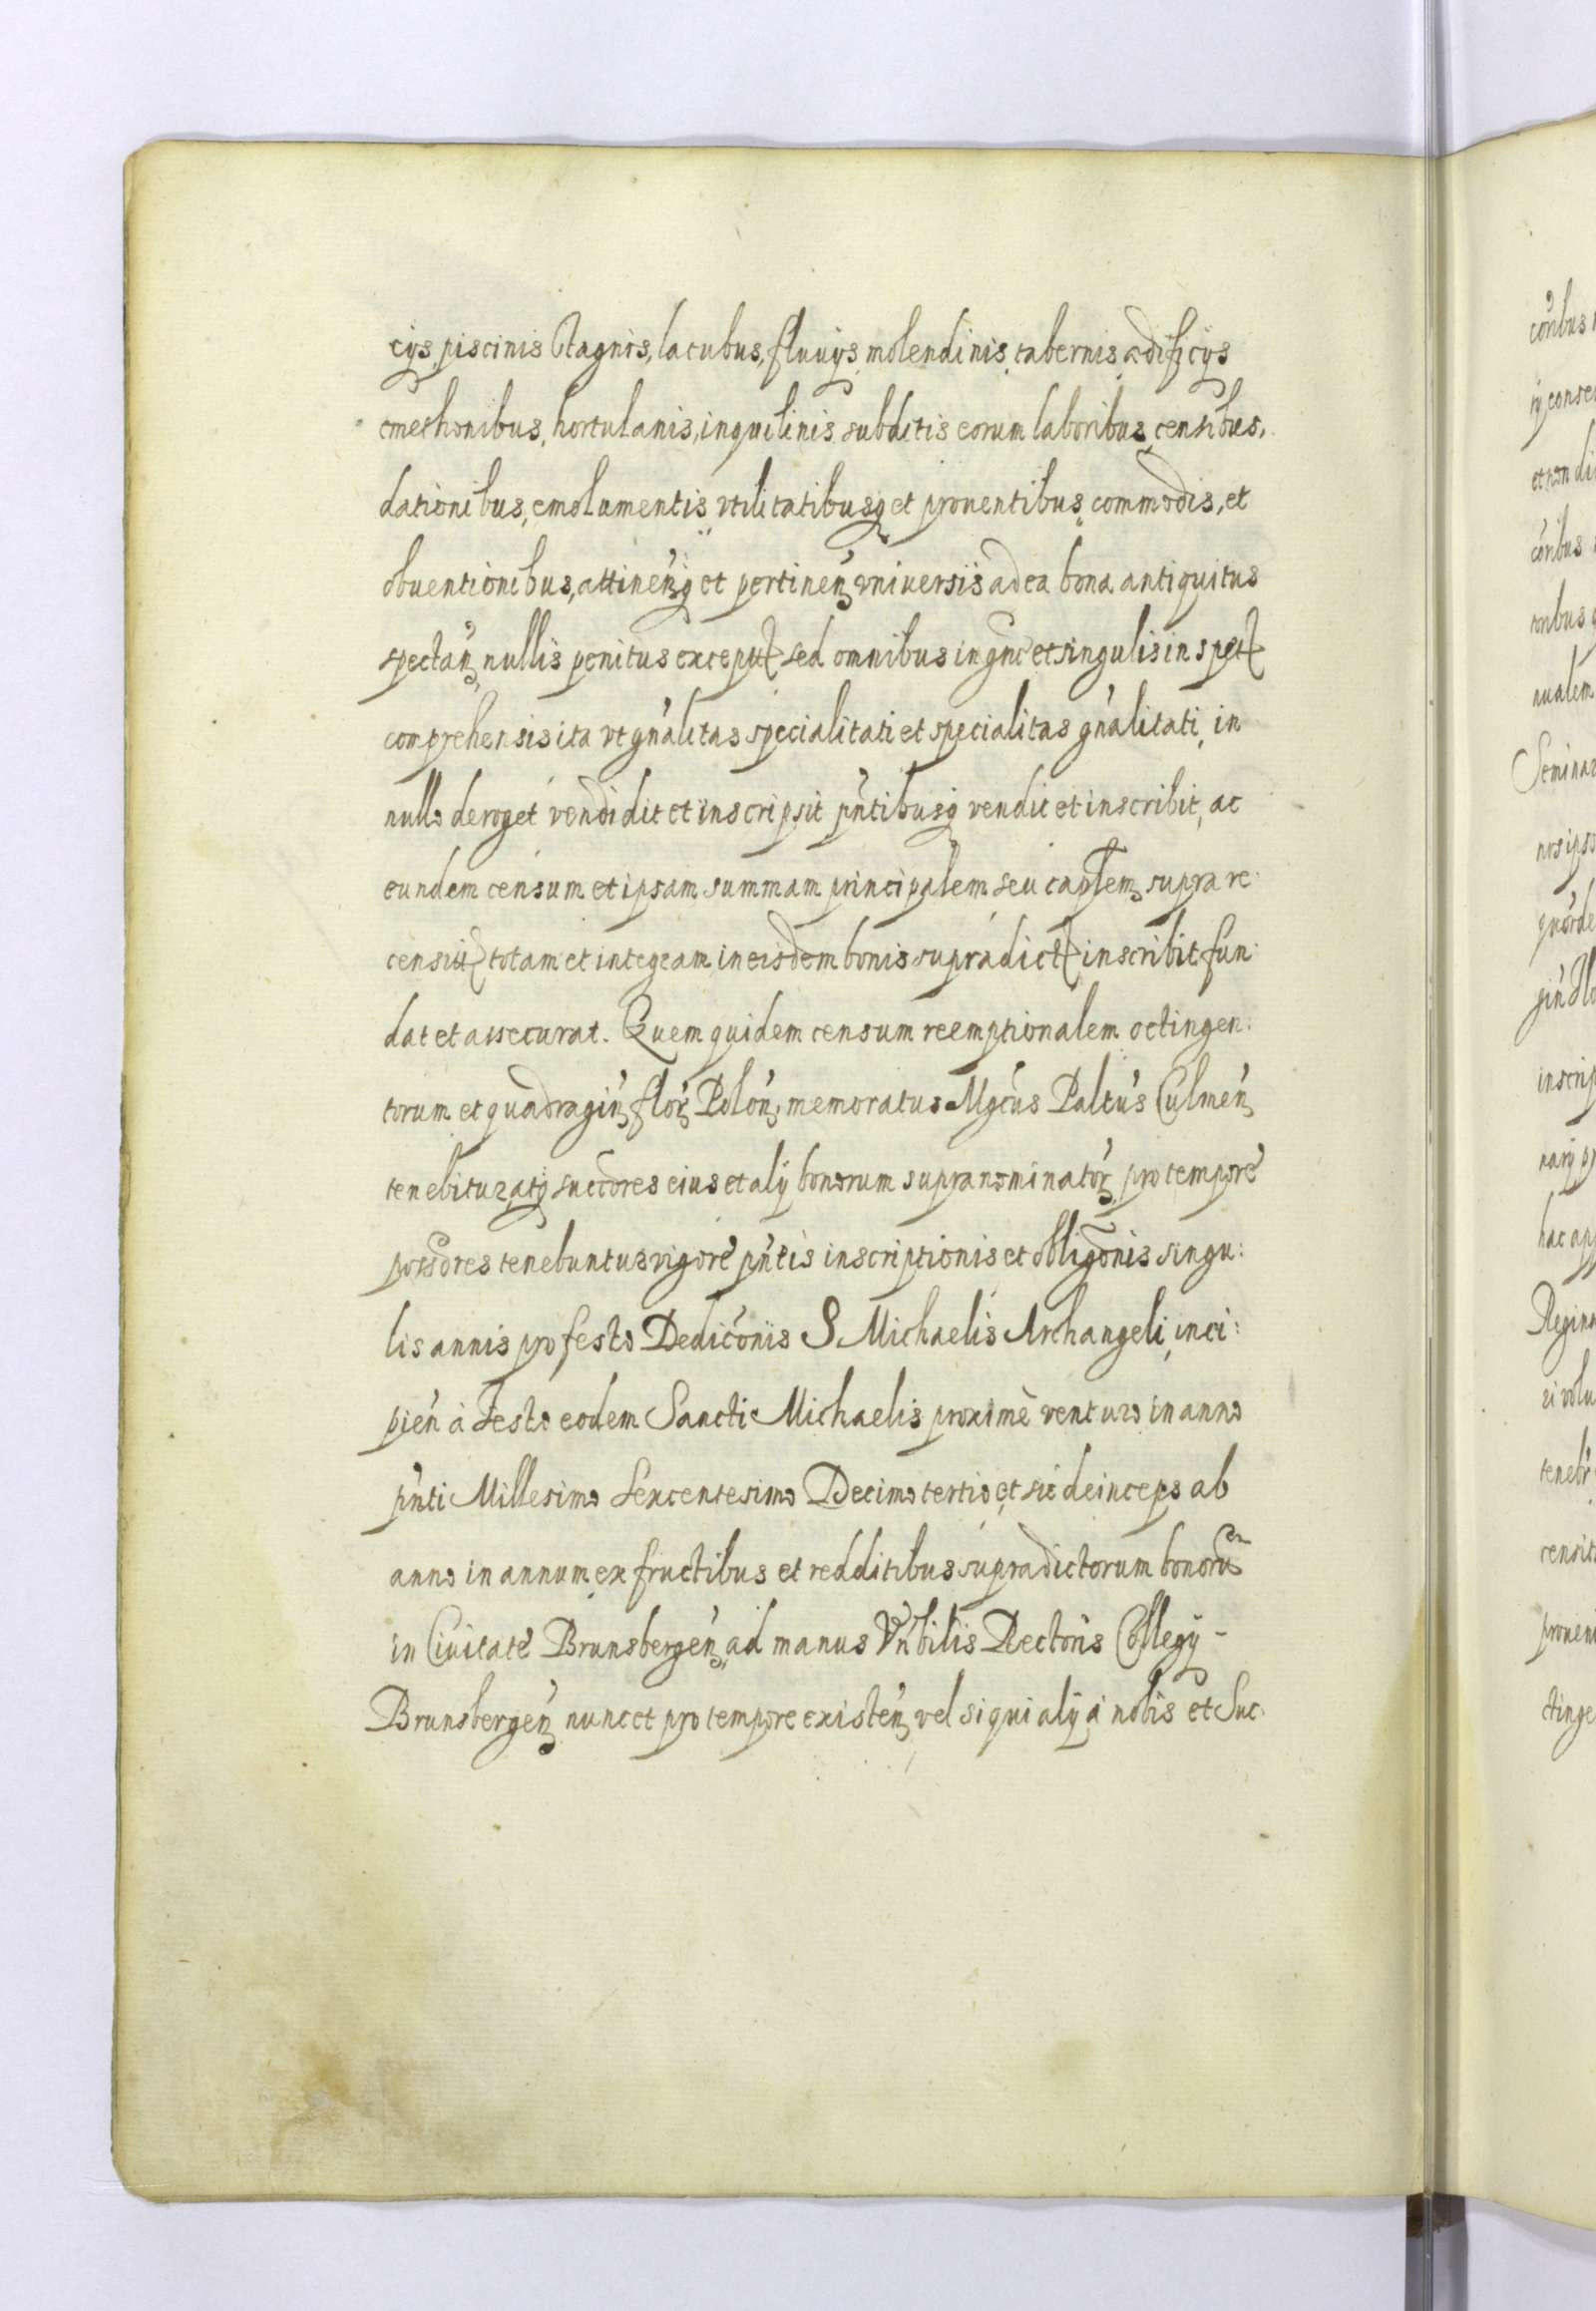 cÿs, piscinis stagnis, lacubus, fluuÿs, molendinis, tabernis, ædificÿs
cmethonibus, hortulanis, inquilinis, subditis eorum laboribus, censibus,
dationibus, emolumentis, vtilitatibusq et prouentibus, commodis, et
obuentionibus, attineń q et pertineń vniversis ad ea bona antiquitus
spectań, nullis penitus except sed omnibus in gńe et singulis in spēt
comprehensis ita vt gńalitas specialitati et specialitas gńalitati, in
nullo deroget vendidit et inscripsit pńtibusq vendit et inscribit, ac
eundem censum et ipsam summam principalem seu captlem supra re:
censit totam et integram in eisdem bonis supradict inscribit fun:
dat et assecurat. Quem quidem censum reemptionalem octingen:
torum et quadragiń flor Poloń, memoratus Mgćus Paltus Culmeń
tenebitur, atq succores eius et alÿ bonorum supranominator, pro tempore
possores tenebuntur vigore pńtis inscriptionis et obligōnis singu:
lis annis pro festo Dedicōnis S Michaelis Archangeli, inci:
pień à Festo eodem Sancti Michaelis proximè venturo in anno
pńti Millesimo Sexcentesimo Decimo tertio, et sic deinceps ab
anno in annum, ex fructibus et redditibus supradictorum bonorū
in Ciuitate Brunsbergeń, ad manus Vńbilis Rectoris Collegÿ -
Brunsbergeń nunc et pro tempore existeń vel si qui alÿ à nobis et Suc: